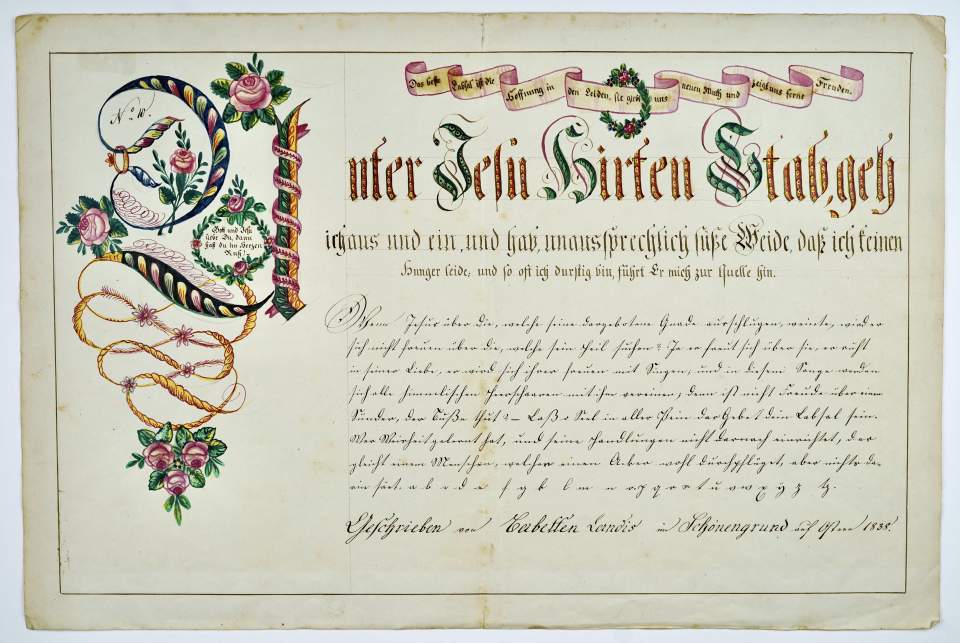 No. 10.
Das beste Labsal ist die Hoffnung in den Leiden, sie giebt uns neuen Muth und zeigt uns ferne Freuden.
Unter Jesu Hirten Stab, geh
ich aus und ein, und hab, unaussprechlich süße Weide, daß ich keinen
Hunger leide; und so oft ich durstig bin, führt Er mich zur Quelle hin.
Gott und Jesu
übe Du, dann
hast du im Herzen
Ruh!
Wenn Jesus über die, welche seine dargebotene Gnade ausschlugen, weinte, wird er
sich nicht freuen über die, welche sein Heil suchen? Ja er freut sich über sie, er ruht
in seiner Liebe, er wird sich ihrer freuen mit Singen, und in diesem Sange werden
sich alle himmlischen Heerschaaren mit ihm vereinen; denn ist nicht Freude über einen
Sünder, der Buße thut? – Laß o Seel in aller Pein das Gebet dein Labsal sein.
Wer Weisheit gelernt hat, und seine Handlungen nicht darnach einrichtet, der
gleicht einem Menschen, welcher einen Acker wohl durchpflüget, aber nichts da-
rein säet. a b c d e f g h l m n o p q r s t u v w x y z tz.
Geschrieben von Babetten Landis in Schönengrund auf Ostern 1838.